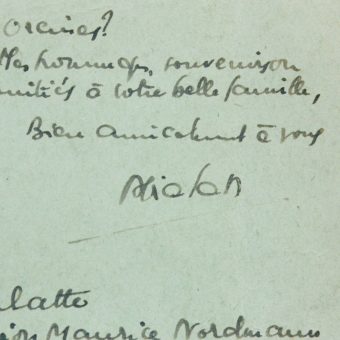 Mes hommages, souvenirs
amitiés à votre belle famille,
Bien amicalement à vous
latte
Maurice Nordmann